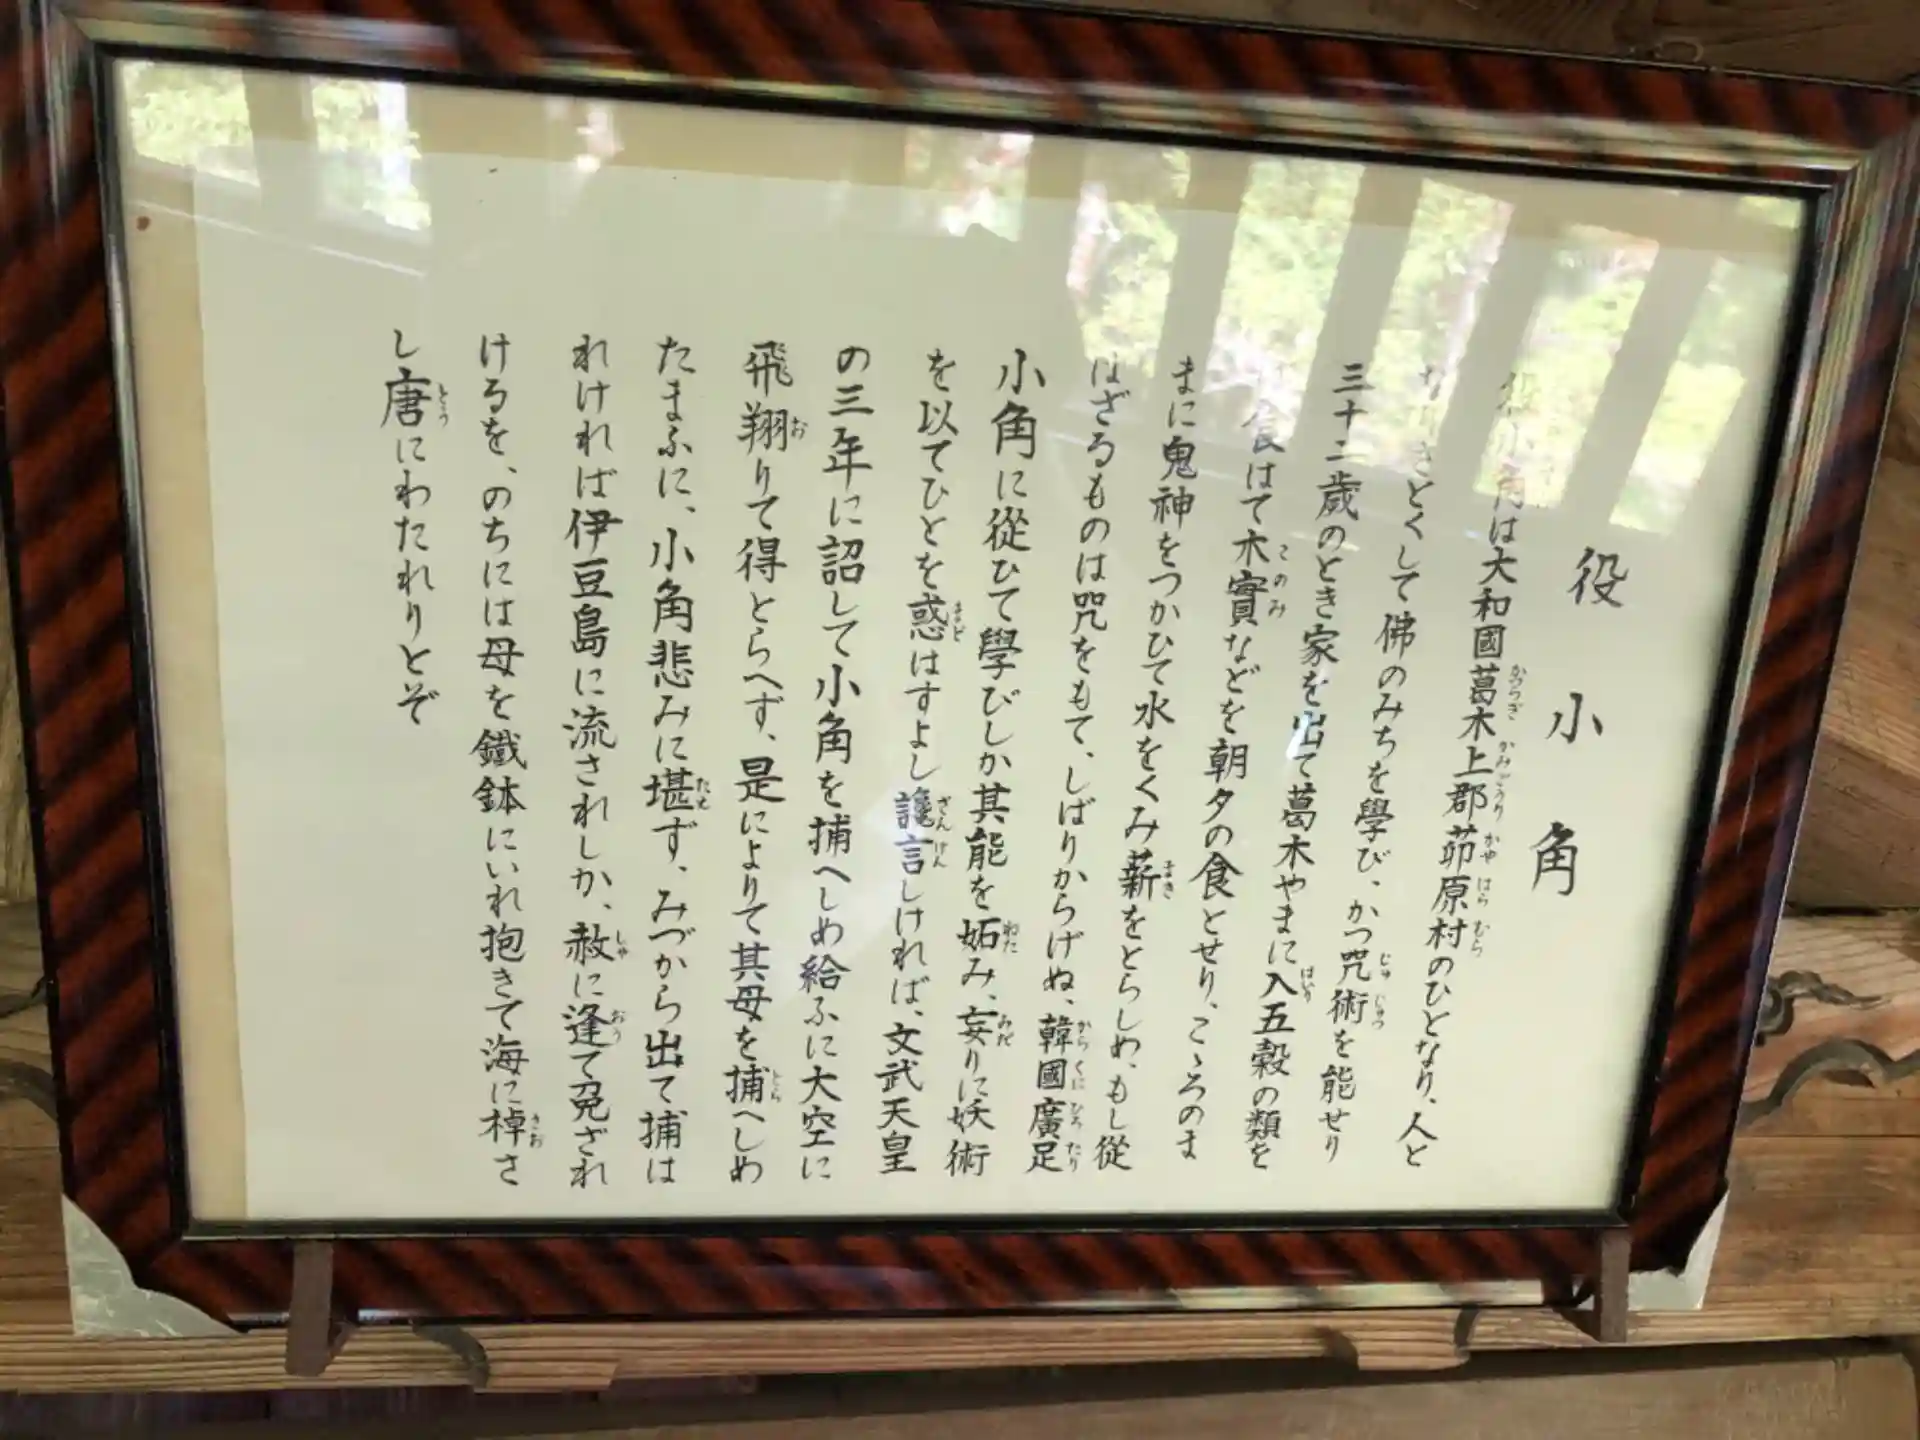 役小角
役小角は大和國葛木上郡茆原村のひとなり、人と
なりさとくして佛のみちを學び、かつ咒術を能せり
三十二歳のとき家を出て葛木やまに入五穀の類を
食はて木實などを朝夕の食とせり、こゝろのま
まに鬼神をつかひて水をくみ薪をとらしめ、もし從
はざるものは咒をもて、しばりからげぬ、韓國廣足
小角に從ひて學びしか其能を妬み、妄りに妖術
を以てひとを惑はすよし讒言しければ、文武天皇
の三年に詔して小角を捕へしめ給ふに大空に
飛翔りて得とらへず、是によりて其母を捕へしめ
たまふに、小角悲みに堪ず、みづから出て捕は
れければ伊豆島に流されしか、赦に逢て免ざれ
けるを、のちには母を鐵鉢にいれ抱きて海に棹さ
し唐にわたれりとぞ